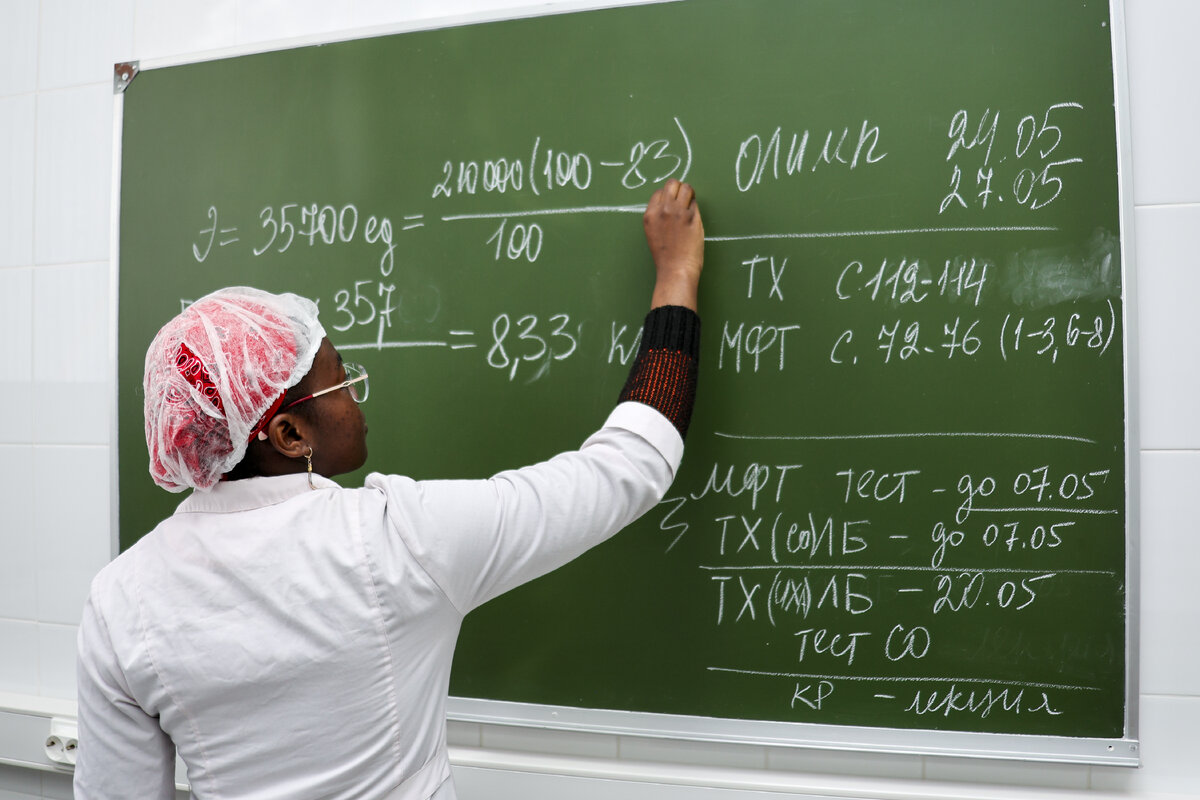 Э = 35700 ед = 210000(100-83)
100
357
= 8,33
ОЛИМП 24.05
27.05
ТХ С 112-114
МФТ С. 72-76 (1-3, 6-8)
МФТ тест - до 07.05
ТХ (СО) ЛБ - до 07.05
ТХ ЛБ - 20.05
тест СО
КР - лекция